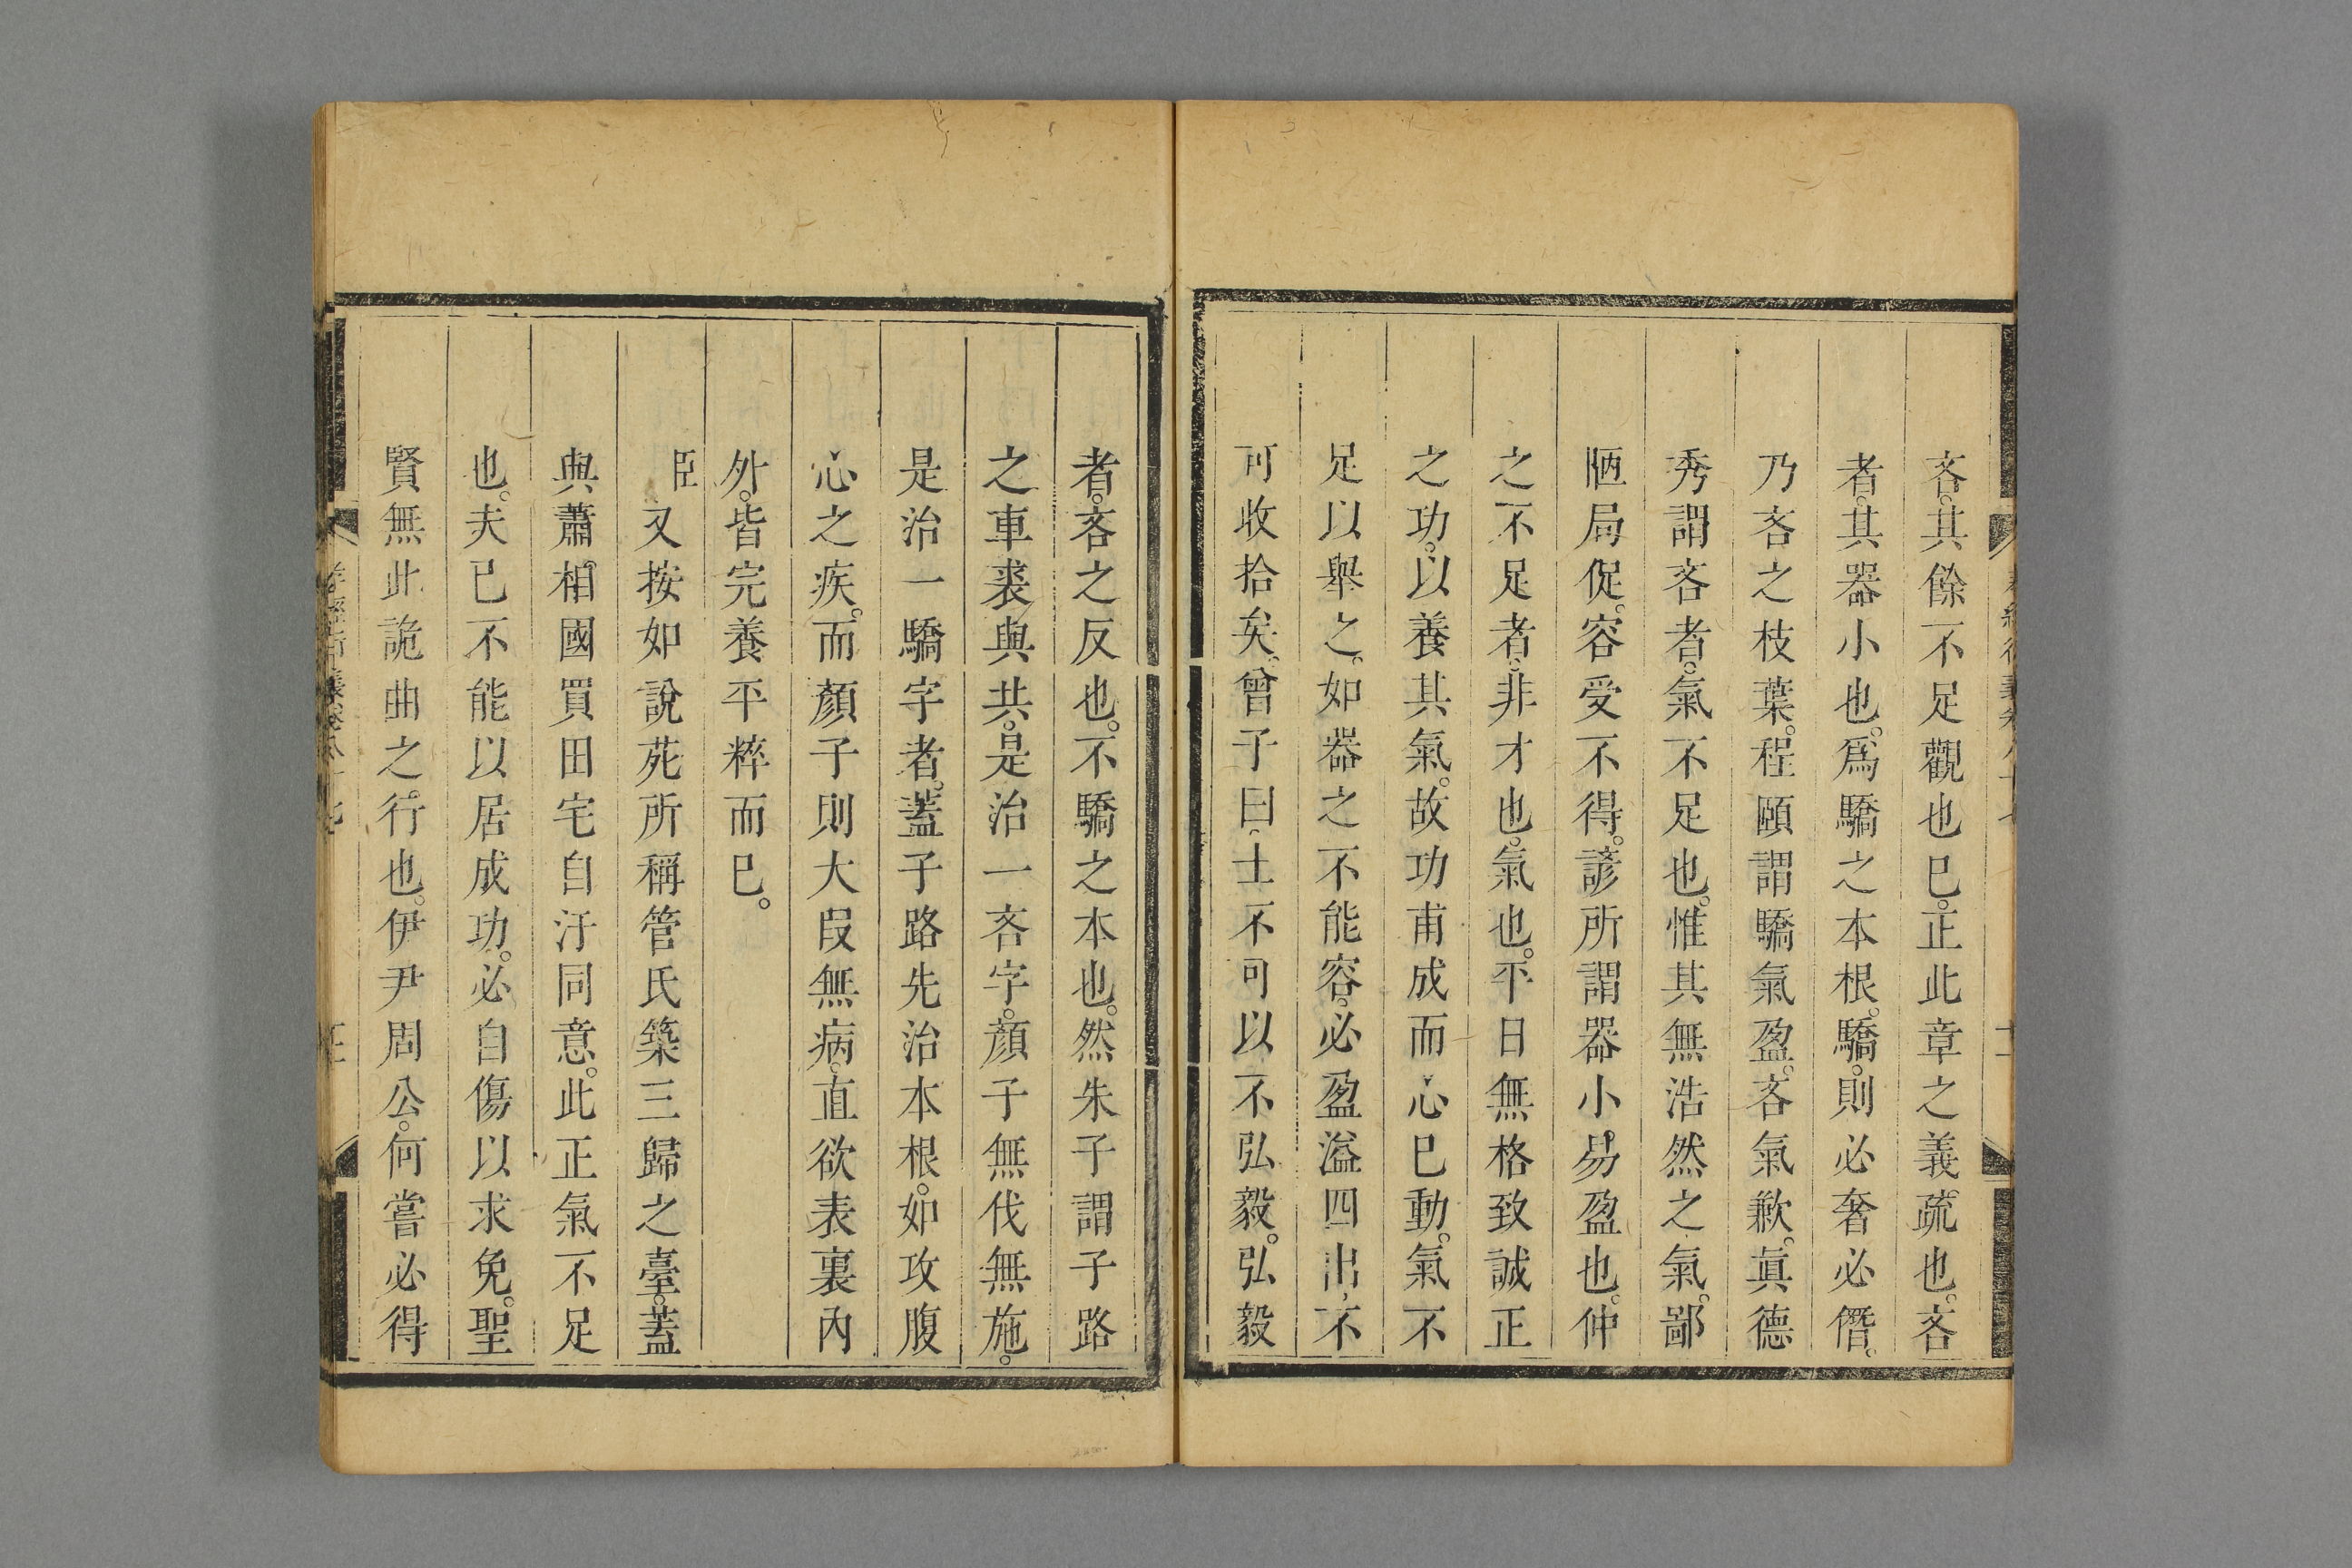 吝。其餘不足觀也已。正此章之義疏也。吝
者。其器小也。為驕之本根。驕。則必奢必僭。
乃吝之枝葉。程頤謂驕氣盈。吝氣歉。眞德
秀謂吝者。氣不足也。惟其無浩然之氣。鄙
陋局促。容受不得。諺所謂器小。易盈也。仲
之不足者。非才也。氣也。平日無格致誠正
之功。以養其氣。故功甫成而心已動。氣不
足以舉之。如器之不能容。必盈溢四出。不
可收拾矣。曾子曰。士不可以不弘毅。弘毅
者。吝之反也。不驕之本也。然朱子謂子路
之車裘與共。是治一吝字。顏子無伐無施。
是治一驕字者。蓋子路先治本根。如攻腹
心之疾。而顏子則大段無病。直欲表裏內
外。皆完養平粹而已。
臣又按如說苑所稱管氏築三歸之臺。蓋
與蕭相國買田宅自汙同意。此正氣不足
也。夫已不能以居成功。必自傷以求免。聖
賢無此詭曲之行也。伊尹周公。何嘗必得